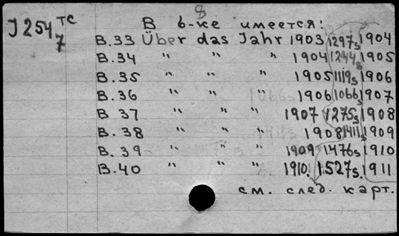 8
J 254 TC
7
В б-ке имеется:
В.33 Über das Jahr 1903 1297s 1904
В.34 " " " 1904 1244s 1905
В.35 " " " 1905 1119s 1906
В.36 " " " 1906 1066s 1907
В 37 " " " 1907 1275s 1908
В.38 " " " 1908 1411s 1909
В.39 " " " 1909 1476s 1910
В.40 " " " 1910 1527s. 1911
см. след. карт.